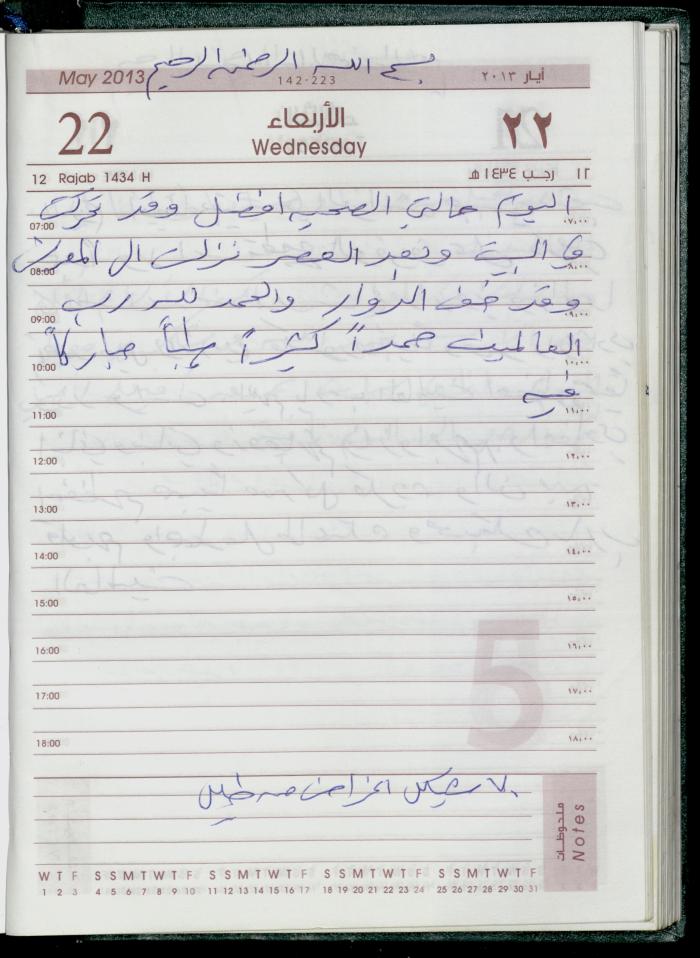 بسم الله الرحمن الرحيم
May 2013
142-223
أيار ٢٠١٣
22
الأربعاء
Wednesday
٢٢
12 Rajab 1434 H
١٢ رجب ١٤٣٤ هـ
اليوم حالتي الصحيه افضل وقد تحركت
07:00 ٠٧,٠٠
في البيت وبعد العصر نزلت ال
08:00 ٠٨,٠٠
وقد خف الزوار والحمد لله رب
09:00 ٠٩,٠٠
العالمين حمداً كثيراً طيباً مباركاً
10:00 ١٠,٠٠
فيه
11:00 ١١,٠٠
12:00 ١٢,٠٠
13:00 ١٣,٠٠
14:00 ١٤,٠٠
15:00 ١٥,٠٠
5
16:00 ١٦,٠٠
17:00 ١٧,٠٠
18:00 ١٨,٠٠
ملحوظات
Notes
W T F S S M T W T F S S M T W T F S S M T W T F S S M T W T F
1 2 3 4 5 6 7 8 9 10 11 12 13 14 15 16 17 18 19 20 21 22 23 24 25 26 27 28 29 30 31